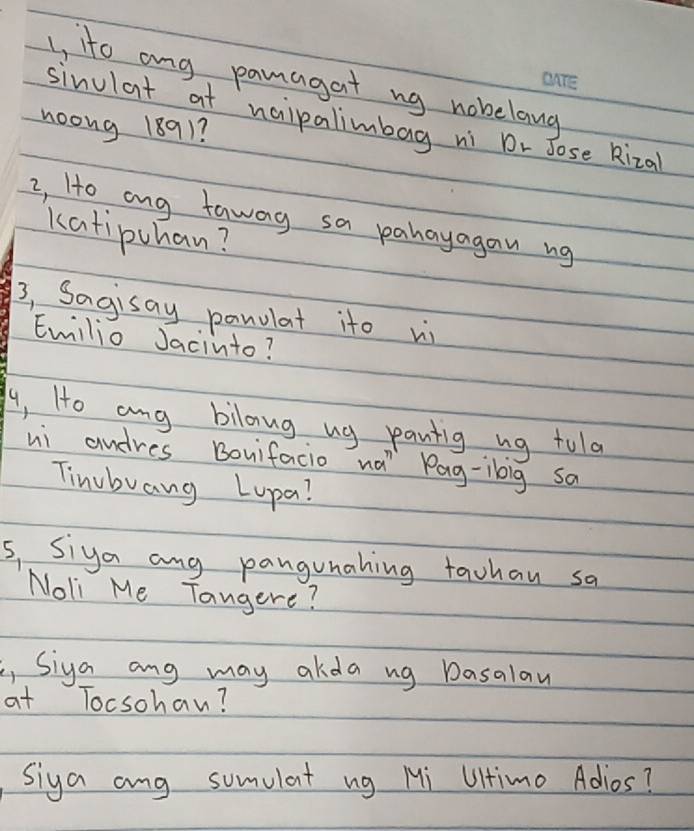 DATE
1, ito ang pamagat ng nobelang
sinulat at naipalimbag ni Dr Jose Rizal
noong 1891?
2, Ito ang tawag sa pahayagan ng
Katipunan?
3, Sagisay panulat ito ni
Emilio Jacinto?
4, Ito ang bilang ng pantig ng tula
ni andres Bonifacio na" Pag-ibig sa
Tinubuang Lupa?
5, Siya ang pangunahing tauhan sa
Noli Me Tangere?
, Siya ang may akda ng Dasalan
at Tocsohan?
, Siya ang sumulat ng Mi Ultimo Adios?